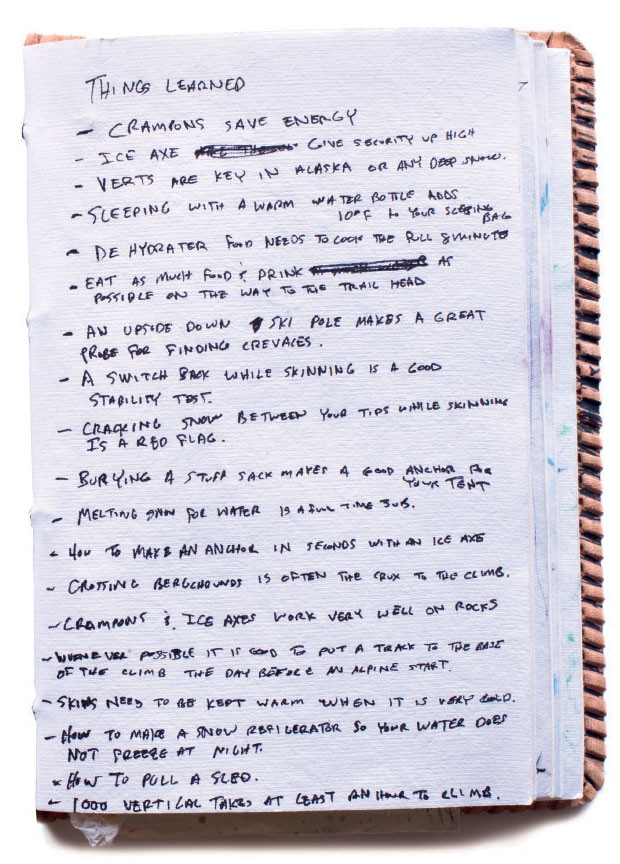 THINGS LEARNED
- CRAMPONS SAVE ENERGY
- ICE AXE GIVE SECURITY UP HIGH
- VERTS ARE KEY IN ALASKA OR ANY DEEP SNOW.
- SLEEPING WITH A WARM WATER BOTTLE ADDS
10°F to YOUR SLEEPING
BAG
- DEHYDRATER FOOD NEEDS TO COOK THE FULL 8 MINUTES
- EAT AS MUCH FOOD & DRINK AS
POSSIBLE ON THE WAY TO THE TRAIL HEAD
- AN UPSIDE DOWN SKI POLE MAKES A GREAT
PROBE FOR FINDING CREVACES.
- A SWITCH BACK WHILE SKINNING IS A GOOD
STABILITY TEST.
- CRACKING SNOW BETWEEN YOUR TIPS WHILE SKINNING
IS A RED FLAG.
- BURYING A STUFF SACK MAKES A GOOD ANCHOR FOR
YOUR TENT
- MELTING SNOW FOR WATER IS A FULL TIME JOB.
- HOW TO MAKE AN ANCHOR IN SECONDS WITH AN ICE AXE
- CROSSING BERGCHOUNDS IS OFTEN THE CRUX TO THE CLIMB.
- CRAMPONS & ICE AXES WORK VERY WELL ON ROCKS
- WHENEVER POSSIBLE IT IS GOOD TO PUT A TRACK TO THE BASE
OF THE CLIMB THE DAY BEFORE AN ALPINE START.
- SKINS NEED TO BE KEPT WARM WHEN IT IS VERY COLD.
- HOW TO MAKE A SNOW REFILERATOR SO YOUR WATER DOES
NOT FREEZE AT NIGHT.
- HOW TO PULL A SLED.
- 1000 VERTICAL TAKES AT LEAST AN HOUR TO CLIMB.